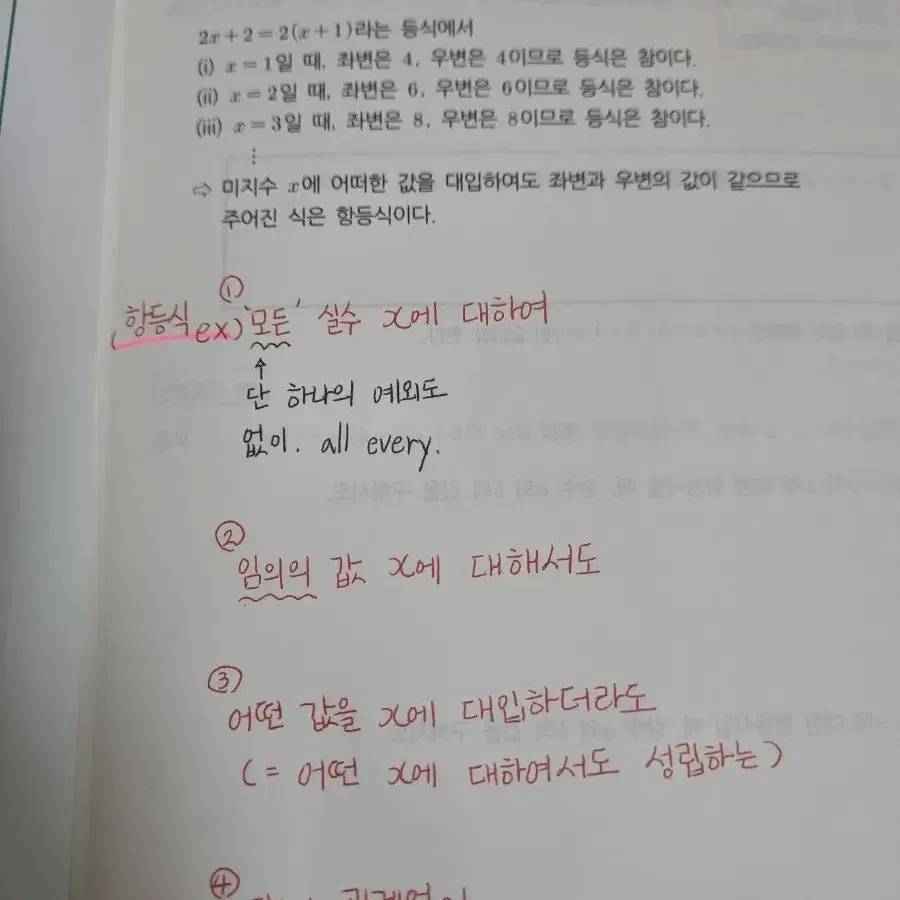 2x+2=2(x+1)라는 등식에서
(i) x=1일 때, 좌변은 4, 우변은 4이므로 등식은 참이다.
(ii) x=2일 때, 좌변은 6, 우변은 6이므로 등식은 참이다.
(iii) x=3일 때, 좌변은 8, 우변은 8이므로 등식은 참이다.
⋮
⇨ 미지수 x에 어떠한 값을 대입하여도 좌변과 우변의 값이 같으므로
주어진 식은 항등식이다.
①
항등식 ex) '모든' 실수 x에 대하여
↑
단 하나의 예외도
없이. all every.
②
임의의 값 x에 대해서도
③
어떤 값을 x에 대입하더라도
(= 어떤 x에 대하여서도 성립하는)
④